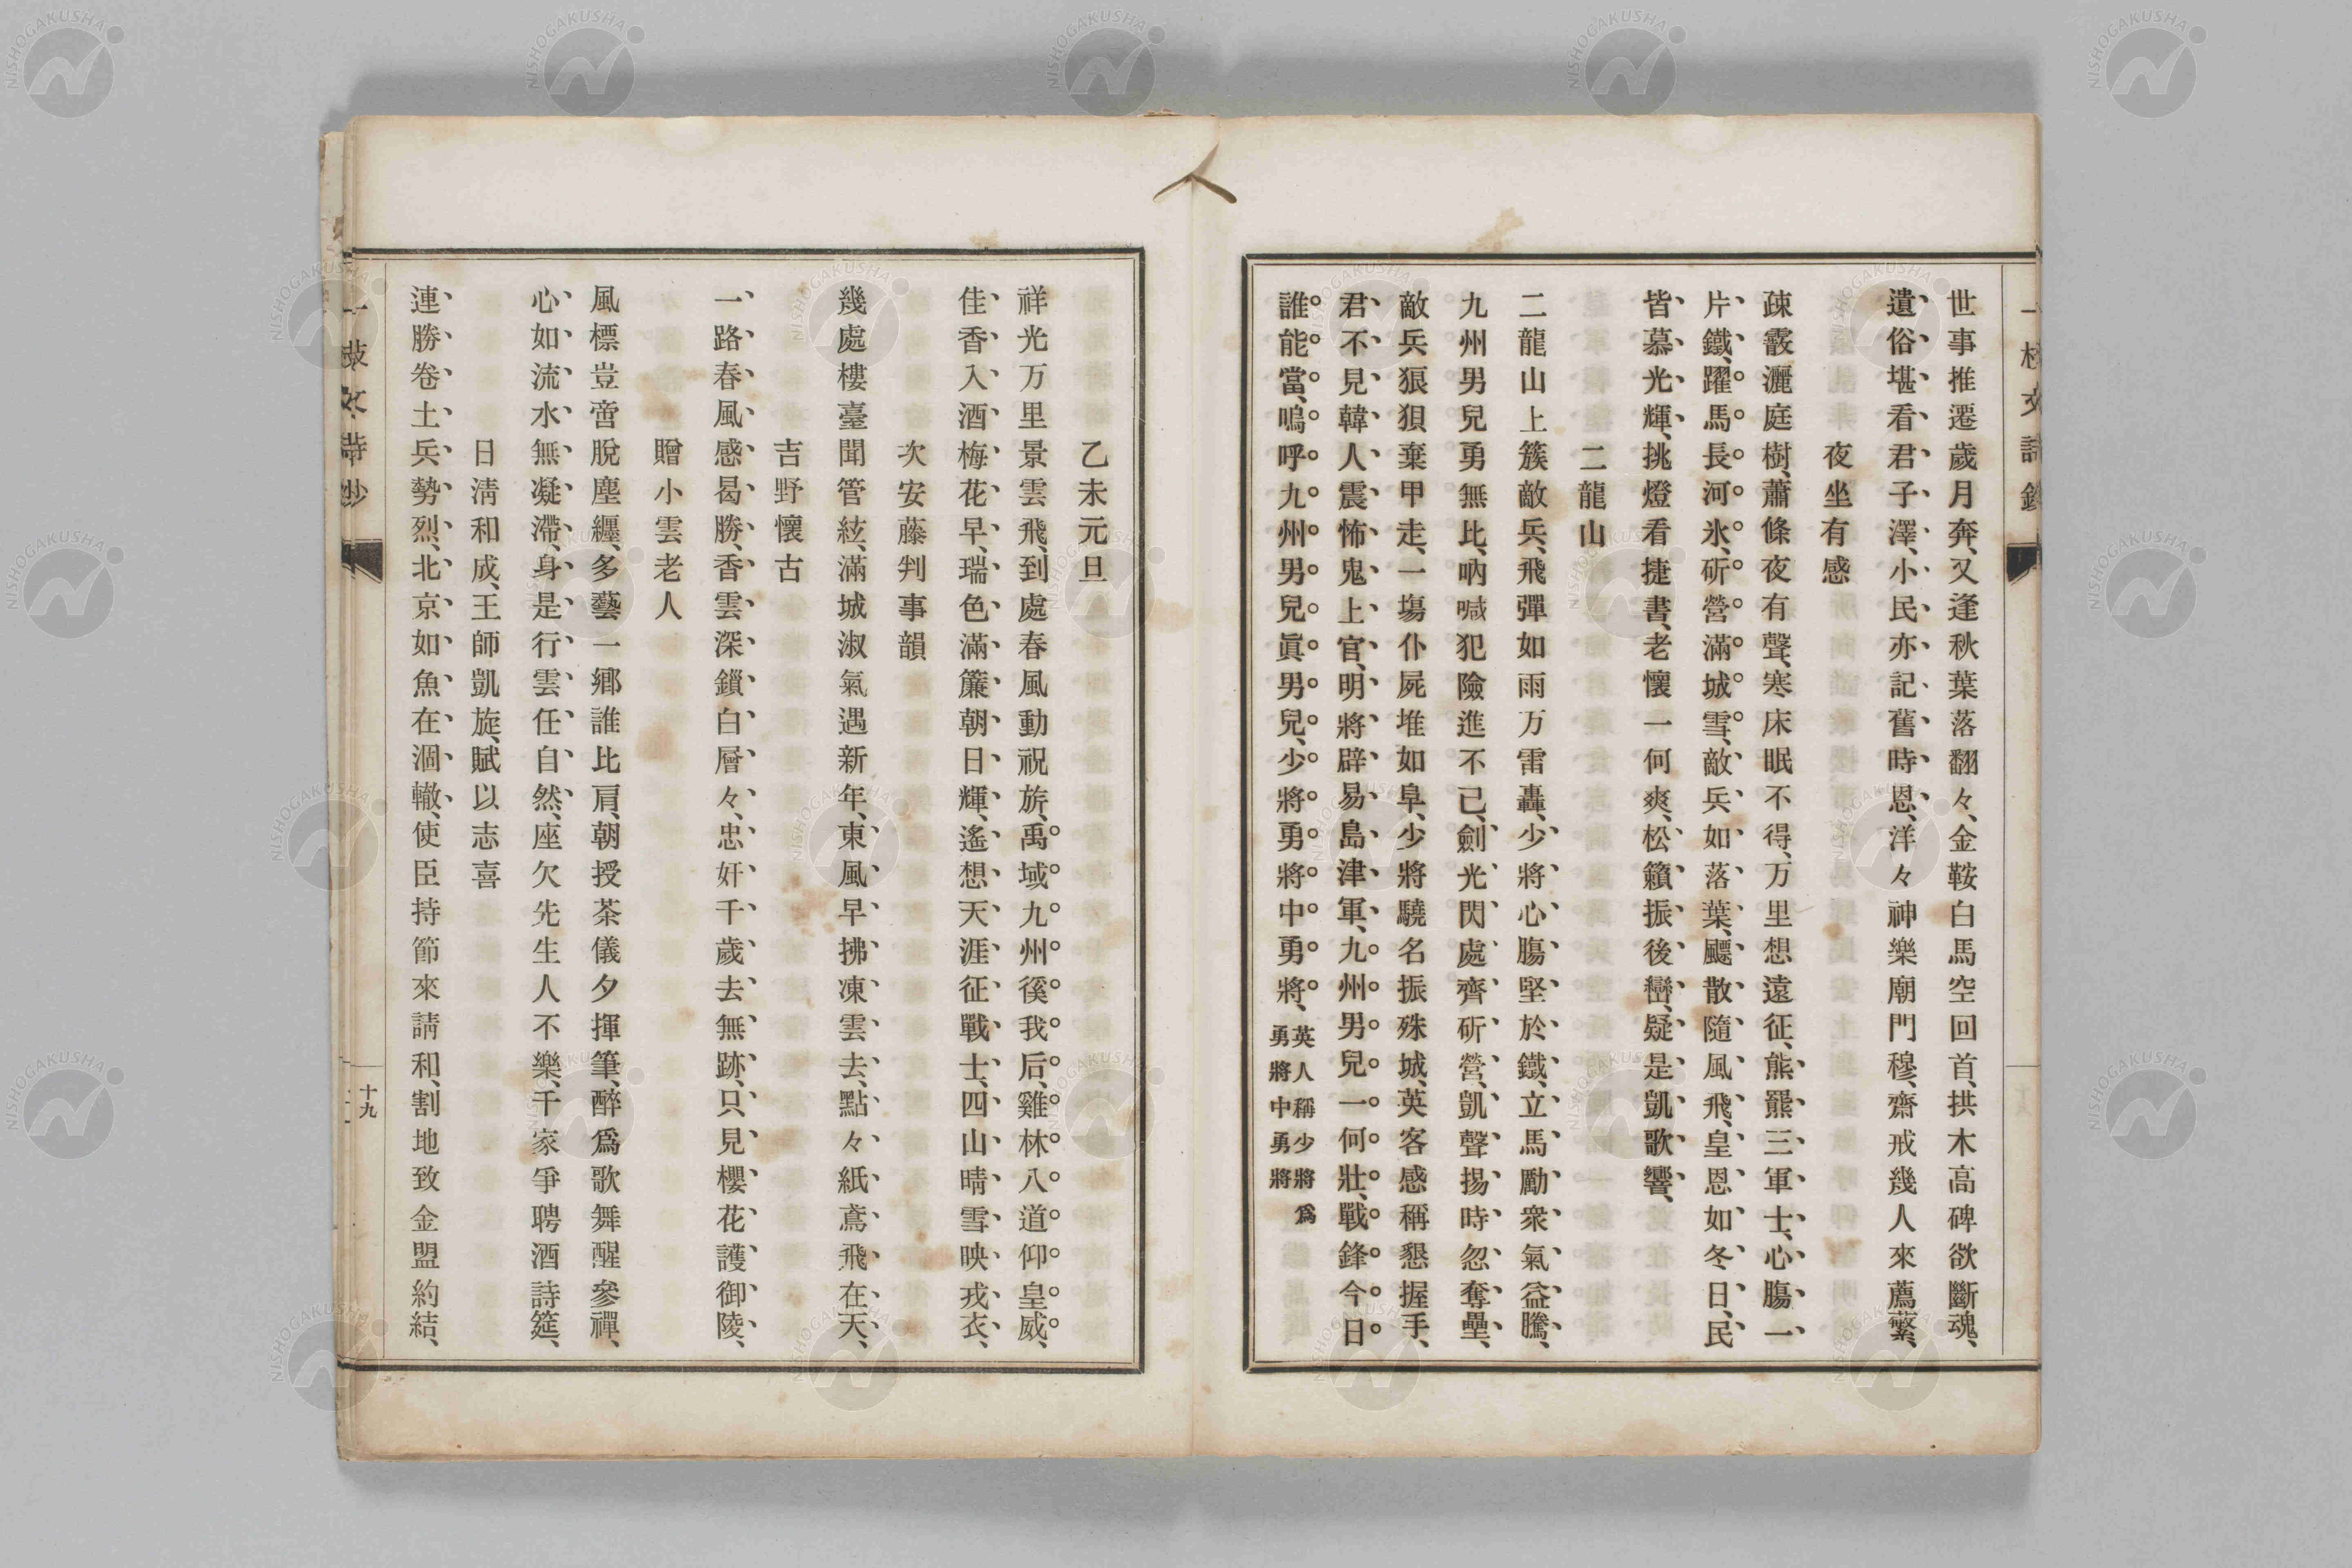 世事推遷歲月奔、又逢秋葉落翻々、金鞍白馬空回首、拱木高碑欲斷魂、
遺俗堪看君子澤、小民亦記舊時恩、洋々神樂廟門穆、齋戒幾人來薦蘩、
夜坐有感
疎霰灑庭樹、蕭條夜有聲、寒床眠不得、万里想遠征、熊羆三軍士、心膓一
片鐵、躍馬長河氷、斫營滿城雪、敵兵如落葉、飃散隨風飛、皇恩如冬日、民
皆慕光輝、挑燈看捷書、老懷一何爽、松籟振後巒、疑是凱歌響、
二龍山
二龍山上簇敵兵、飛彈如雨万雷轟、少將心膓堅於鐵、立馬勵衆氣益騰、
九州男兒勇無比、吶喊犯險進不已、劍光閃處齊斫營、凱聲揚時忽奪壘、
敵兵狼狽棄甲走、一塲仆屍堆如阜、少將驍名振殊城、英客感稱懇握手、
君不見韓人震怖鬼上官、明將辟易島津軍、九州男兒一何壯、戰鋒今日
誰能當、嗚呼九州男兒眞男兒、少將勇將中勇將、英人稱少將爲勇將中勇將
乙未元旦
祥光万里景雲飛、到處春風動祝旂、禹域九州徯我后、雞林八道仰皇威、
佳香入酒梅花早、瑞色滿簾朝日輝、遙想天涯征戰士、四山晴雪映戎衣、
次安藤判事韻
幾處樓臺聞管絃、滿城淑氣遇新年、東風早拂凍雲去、點々紙鳶飛在天、
吉野懷古
一路春風感曷勝、香雲深鎖白層々、忠奸千歲去無跡、只見櫻花護御陵、
贈小雲老人
風標豈啻脫塵纒、多藝一鄉誰比肩、朝授茶儀夕揮筆、醉爲歌舞醒參禪、
心如流水無凝滯、身是行雲任自然、座欠先生人不樂、千家爭聘酒詩筵、
日淸和成、王師凱旋、賦以志喜
連勝卷土兵勢烈、北京如魚在涸轍、使臣持節來請和、割地致金盟約結、
十九